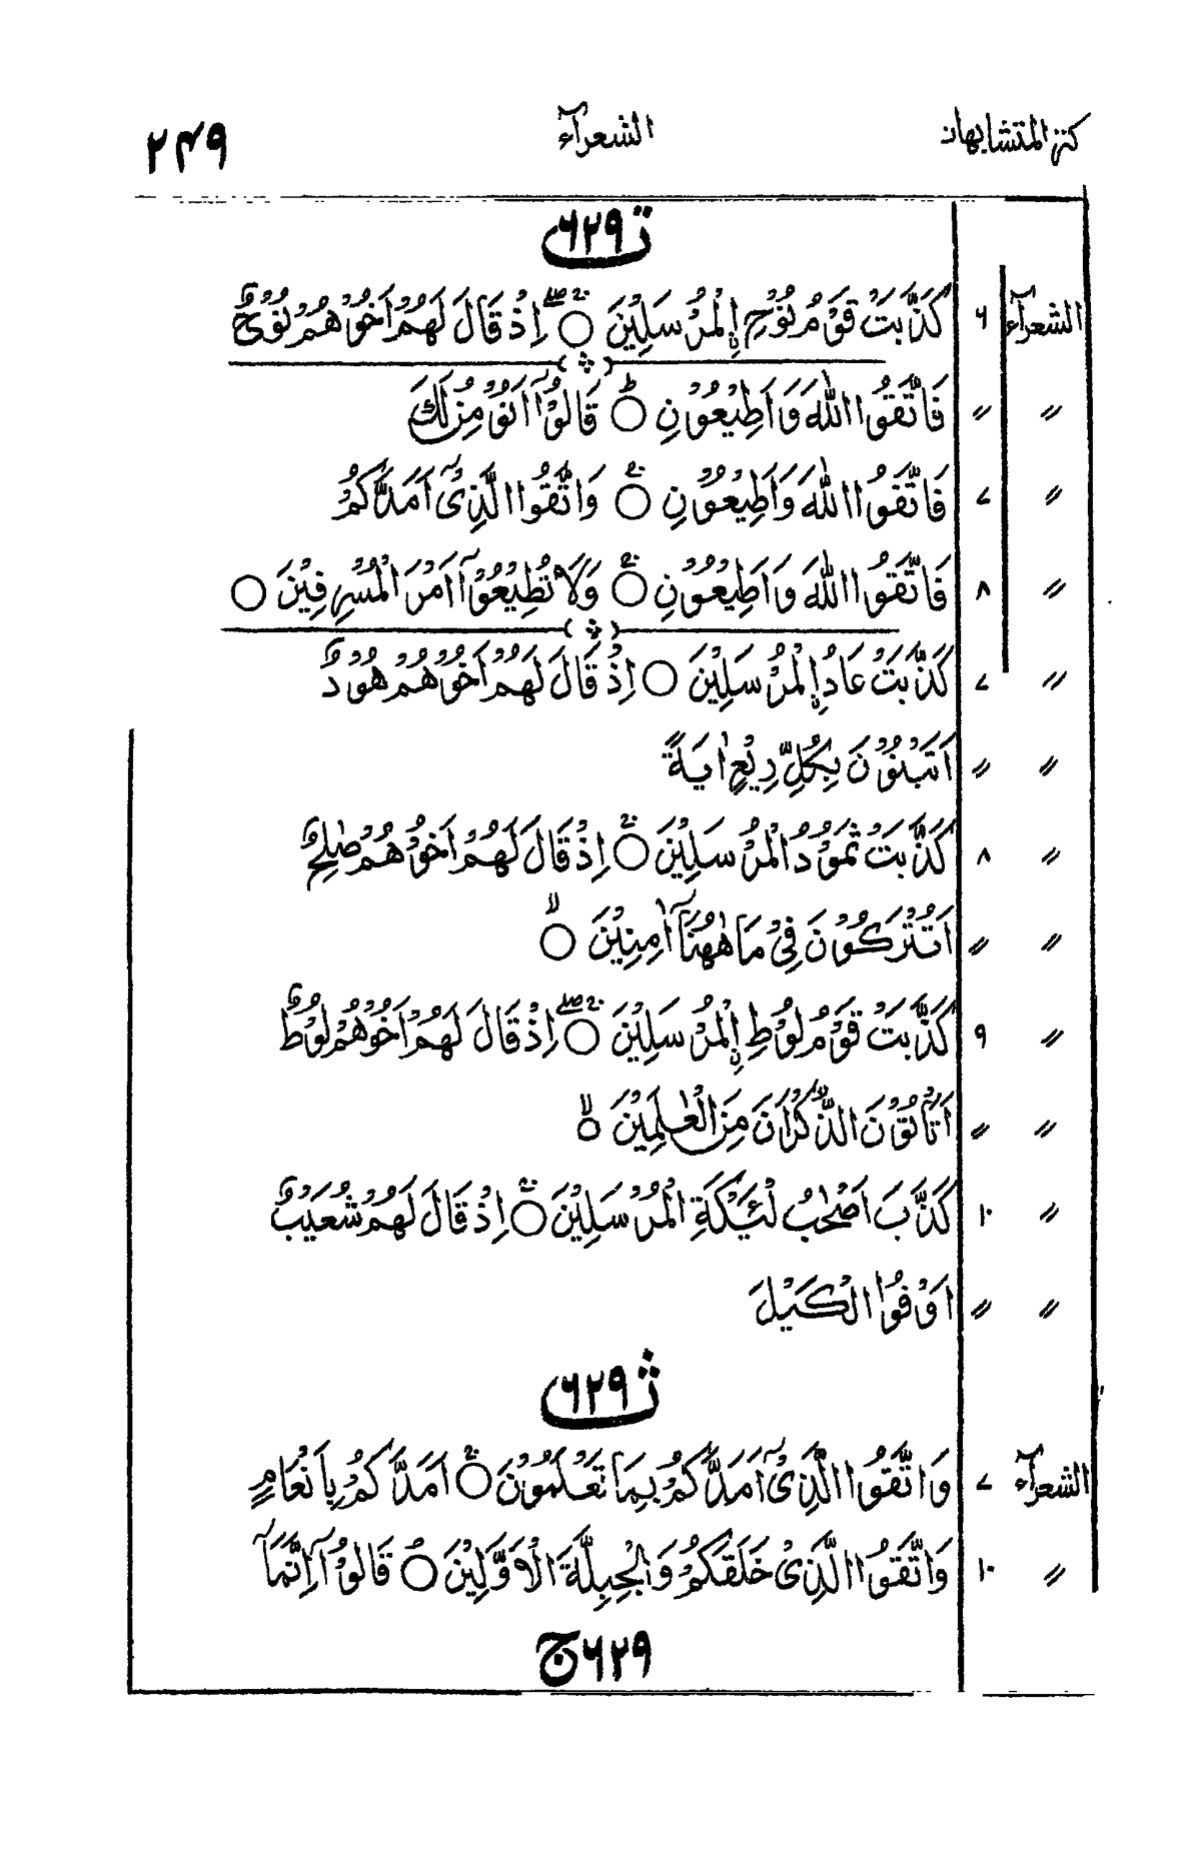 كنز المتشابهات الشعرآء ٢٤٩
ت ٦٢٩
الشعرآء ٦ كَذَّبَتْ قَوْمُ نُوْحِ ۨالْمُرْسَلِيْنَ ۝ اِذْ قَالَ لَهُمْ اَخُوْهُمْ نُوْحٌ
〃 〃 فَاتَّقُوا اللّٰهَ وَاَطِيْعُوْنِ ۝ قَالُوْٓا اَنُؤْمِنُ لَكَ
〃 ٧ فَاتَّقُوا اللّٰهَ وَاَطِيْعُوْنِ ۝ وَاتَّقُوا الَّذِىْٓ اَمَدَّكُمْ
〃 ٨ فَاتَّقُوا اللّٰهَ وَاَطِيْعُوْنِ ۝ وَلَا تُطِيْعُوْٓا اَمْرَ الْمُسْرِفِيْنَ ۝
〃 ٧ كَذَّبَتْ عَادُ ۨالْمُرْسَلِيْنَ ۝ اِذْ قَالَ لَهُمْ اَخُوْهُمْ هُوْدٌ
〃 〃 اَتَبْنُوْنَ بِكُلِّ رِيْعٍ اٰيَةً
〃 ٨ كَذَّبَتْ ثَمُوْدُ الْمُرْسَلِيْنَ ۝ اِذْ قَالَ لَهُمْ اَخُوْهُمْ صٰلِحٌ
〃 〃 اَتُتْرَكُوْنَ فِىْ مَا هٰهُنَآ اٰمِنِيْنَ ۝
〃 ٩ كَذَّبَتْ قَوْمُ لُوْطِ ۨالْمُرْسَلِيْنَ ۝ اِذْ قَالَ لَهُمْ اَخُوْهُمْ لُوْطٌ
〃 〃 اَتَاْتُوْنَ الذُّكْرَانَ مِنَ الْعٰلَمِيْنَ ۝
〃 ١٠ كَذَّبَ اَصْحٰبُ لْـَٔيْكَةِ الْمُرْسَلِيْنَ ۝ اِذْ قَالَ لَهُمْ شُعَيْبٌ
〃 〃 اَوْفُوا الْكَيْلَ
ث ٦٢٩
الشعرآء ٧ وَاتَّقُوا الَّذِىْٓ اَمَدَّكُمْ بِمَا تَعْلَمُوْنَ ۝ اَمَدَّكُمْ بِاَنْعَامٍ
〃 ١٠ وَاتَّقُوا الَّذِىْ خَلَقَكُمْ وَالْجِبِلَّةَ الْاَوَّلِيْنَ ۝ قَالُوْٓا اِنَّمَآ
ج ٦٢٩